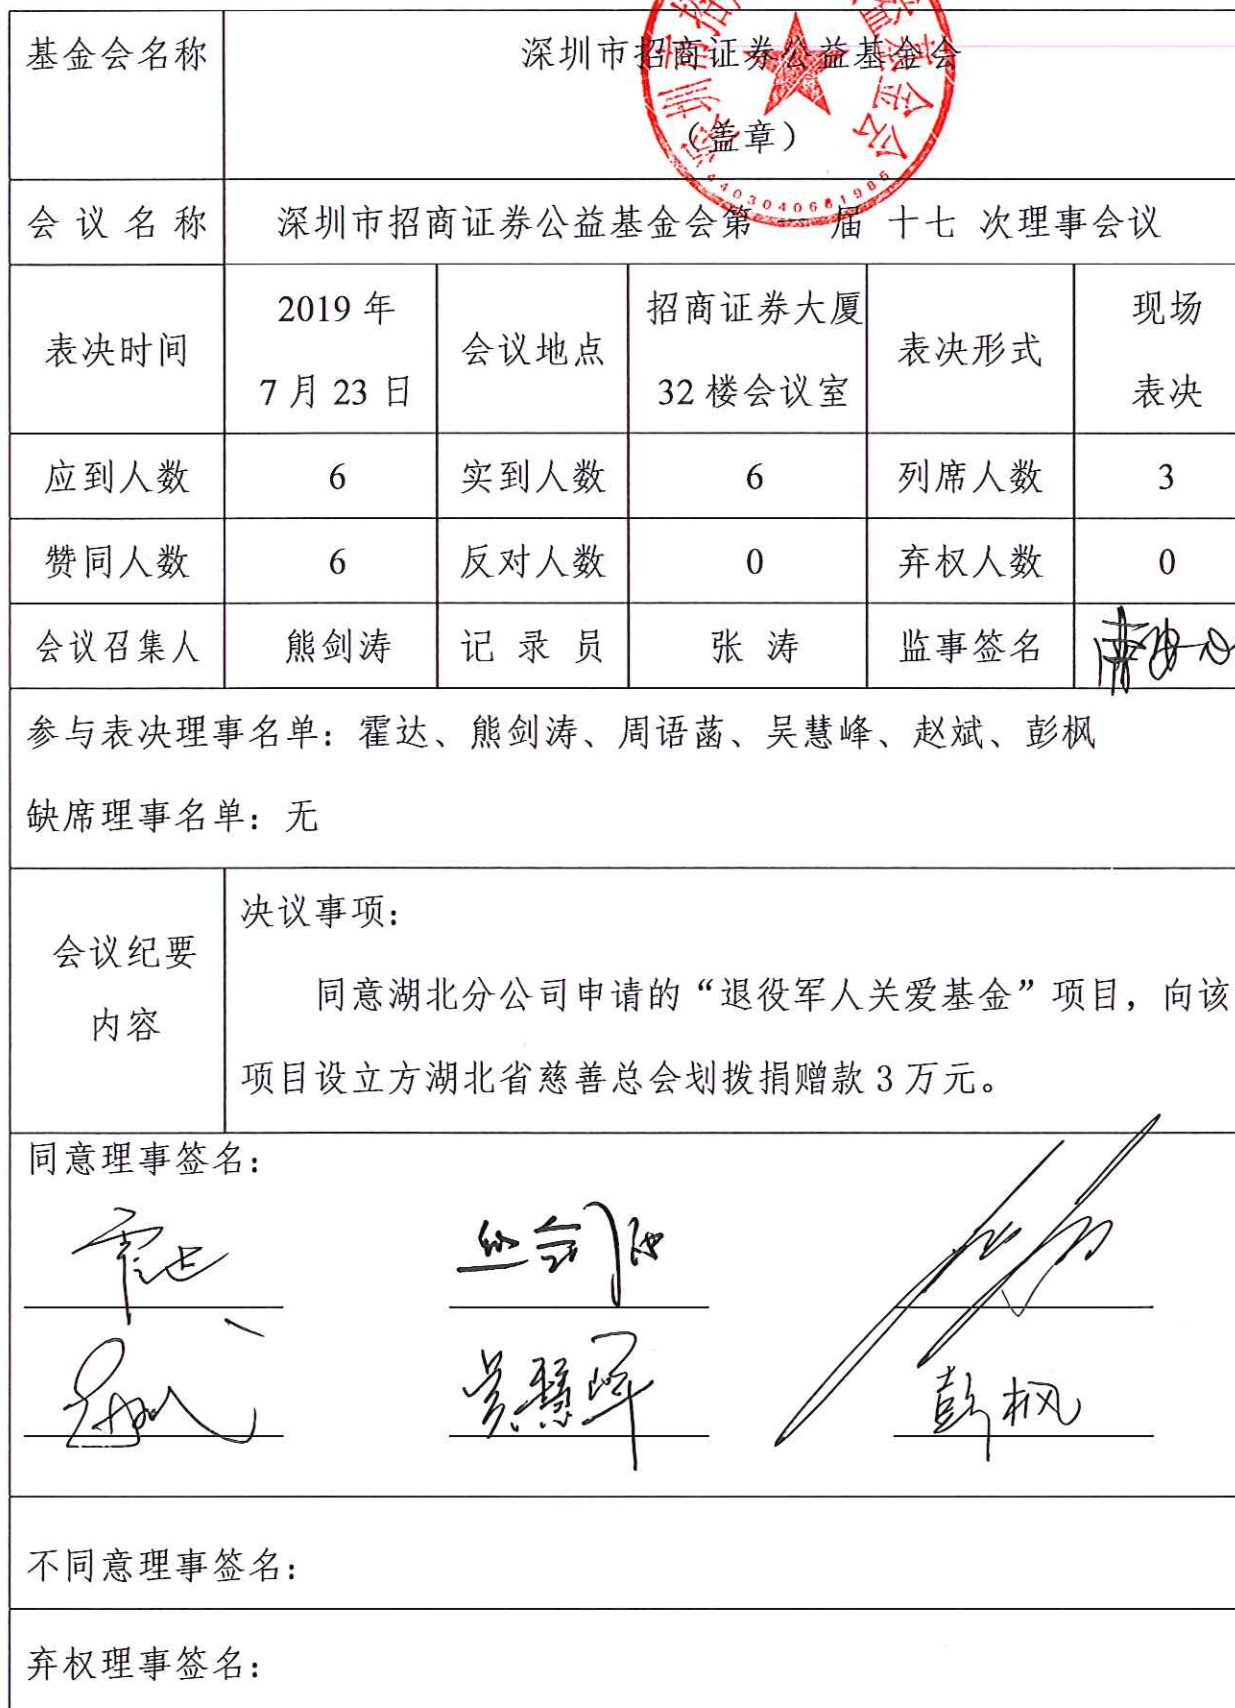 基金会名称
深圳市招商证券公益基金会
（盖章）
4403040661986
会议名称
深圳市招商证券公益基金会第一届 十七 次理事会议
表决时间
2019 年
7 月 23 日
会议地点
招商证券大厦
32 楼会议室
表决形式
现场
表决
应到人数 6 实到人数 6 列席人数 3
赞同人数 6 反对人数 0 弃权人数 0
会议召集人 熊剑涛 记录员 张 涛 监事签名
参与表决理事名单：霍达、熊剑涛、周语菡、吴慧峰、赵斌、彭枫
缺席理事名单：无
会议纪要
内容
决议事项：
同意湖北分公司申请的“退役军人关爱基金”项目，向该
项目设立方湖北省慈善总会划拨捐赠款 3 万元。
同意理事签名：
霍达 熊剑涛
吴慧峰 彭枫
不同意理事签名：
弃权理事签名：